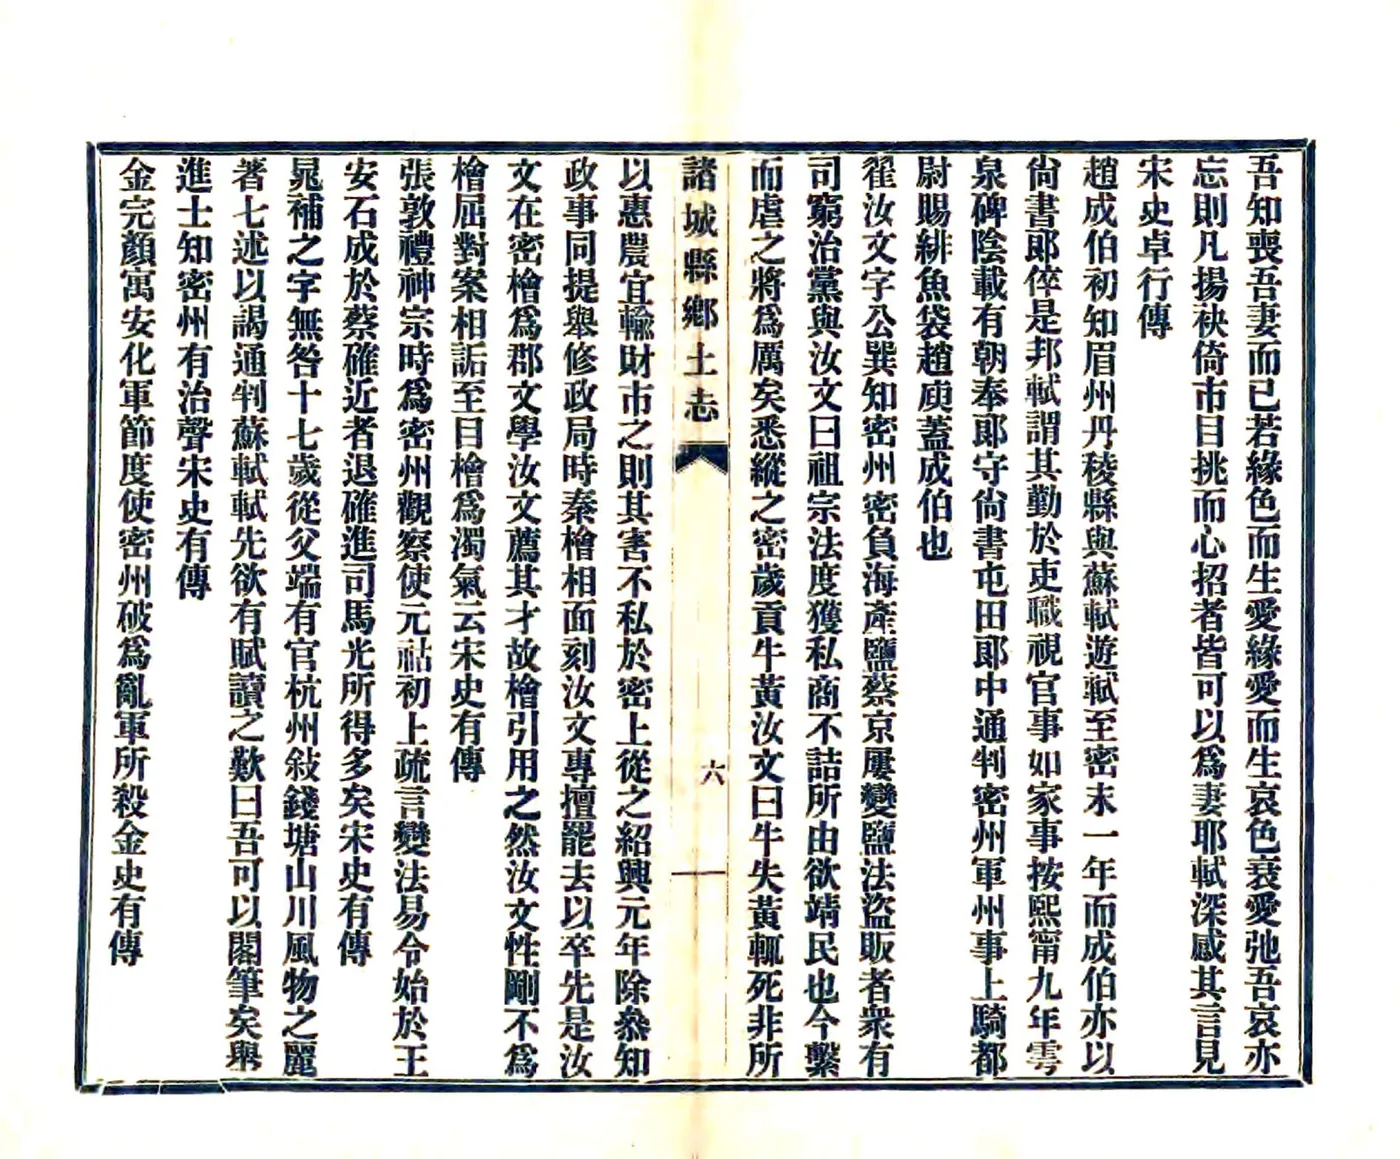 吾知喪吾妻而已若緣色而生愛緣愛而生哀色衰愛弛吾哀亦
忘則凡揚袂倚市目挑而心招者皆可以爲妻耶軾深感其言見
宋史卓行傳
趙成伯初知眉州丹稜縣與蘇軾遊軾至密末一年而成伯亦以
尙書郞倅是邦軾謂其勤於吏職視官事如家事按熙甯九年雩
泉碑陰載有朝奉郞守尙書屯田郞中通判密州軍州事上騎都
尉賜緋魚袋趙庾蓋成伯也
翟汝文字公巽知密州密負海產鹽蔡京屢變鹽法盜販者衆有
司窮治黨與汝文曰祖宗法度獲私商不詰所由欲靖民也今繫
而虐之將爲厲矣悉縱之密歲貢牛黃汝文曰牛失黃輒死非所
諸城縣鄕土志
六
以惠農宜輸財市之則其害不私於密上從之紹興元年除叅知
政事同提舉修政局時秦檜相面刻汝文專擅罷去以卒先是汝
文在密檜爲郡文學汝文薦其才故檜引用之然汝文性剛不爲
檜屈對案相詬至目檜爲濁氣云宋史有傳
張敦禮神宗時爲密州觀察使元祜初上疏言變法易令始於王
安石成於蔡確近者退確進司馬光所得多矣宋史有傳
晁補之字無咎十七歲從父端有官杭州敍錢塘山川風物之麗
著七述以謁通判蘇軾軾先欲有賦讀之歎曰吾可以閣筆矣舉
進士知密州有治聲宋史有傳
金完顏寓安化軍節度使密州破爲亂軍所殺金史有傳